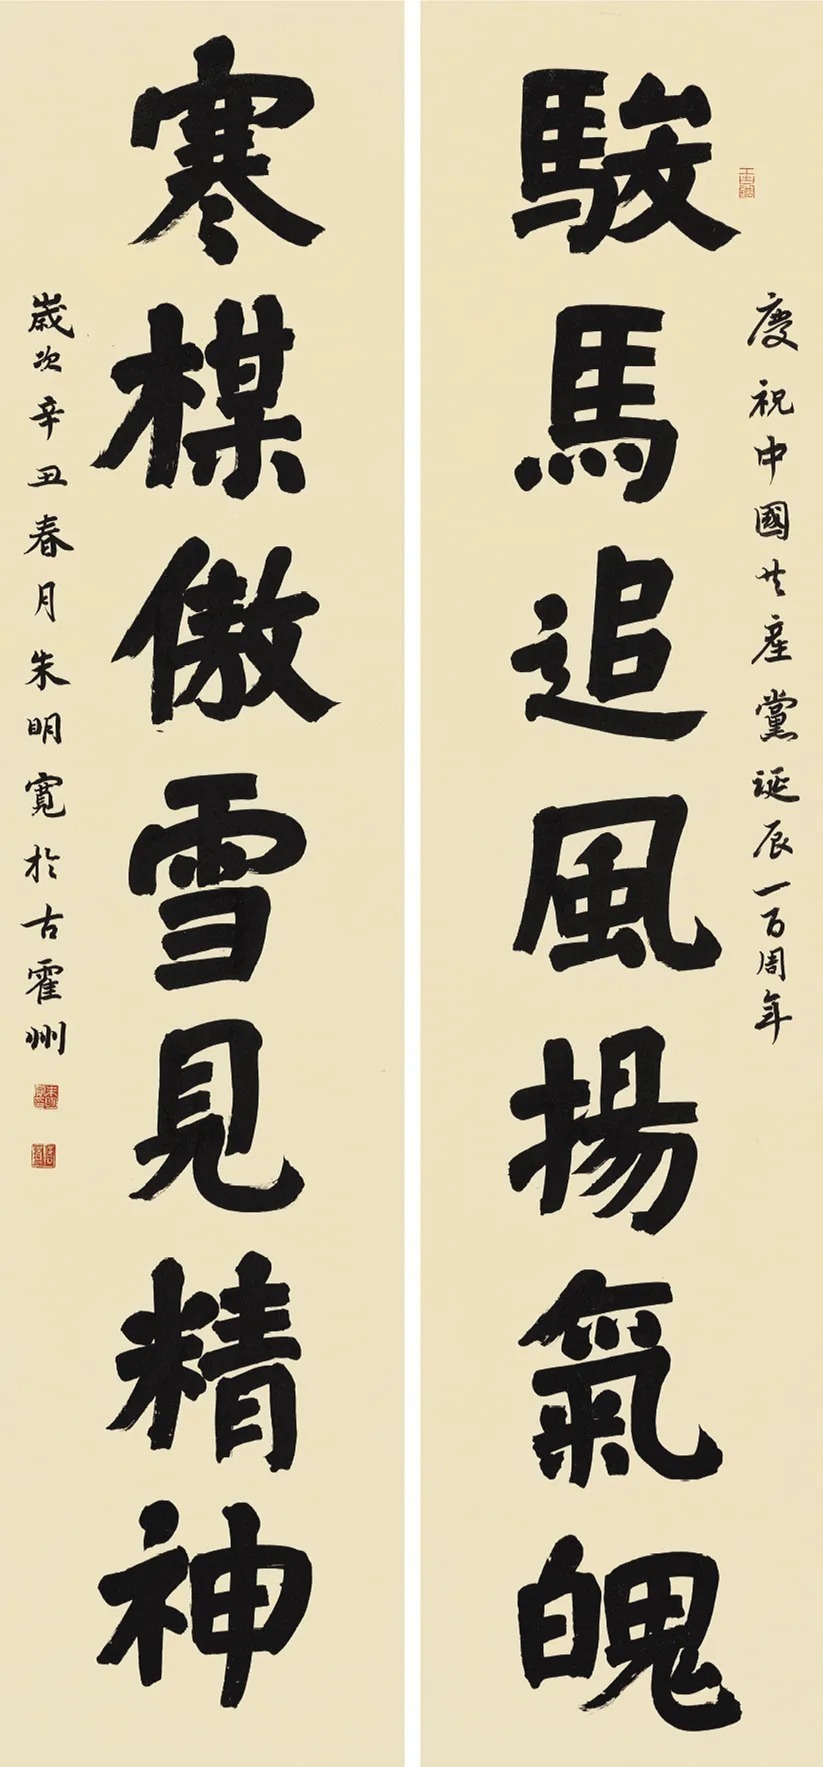 慶祝中國共產黨誕辰一百周年
駿馬追風揚氣魄
寒楳傲雪見精神
歲次辛丑春月朱明寬於古霍州